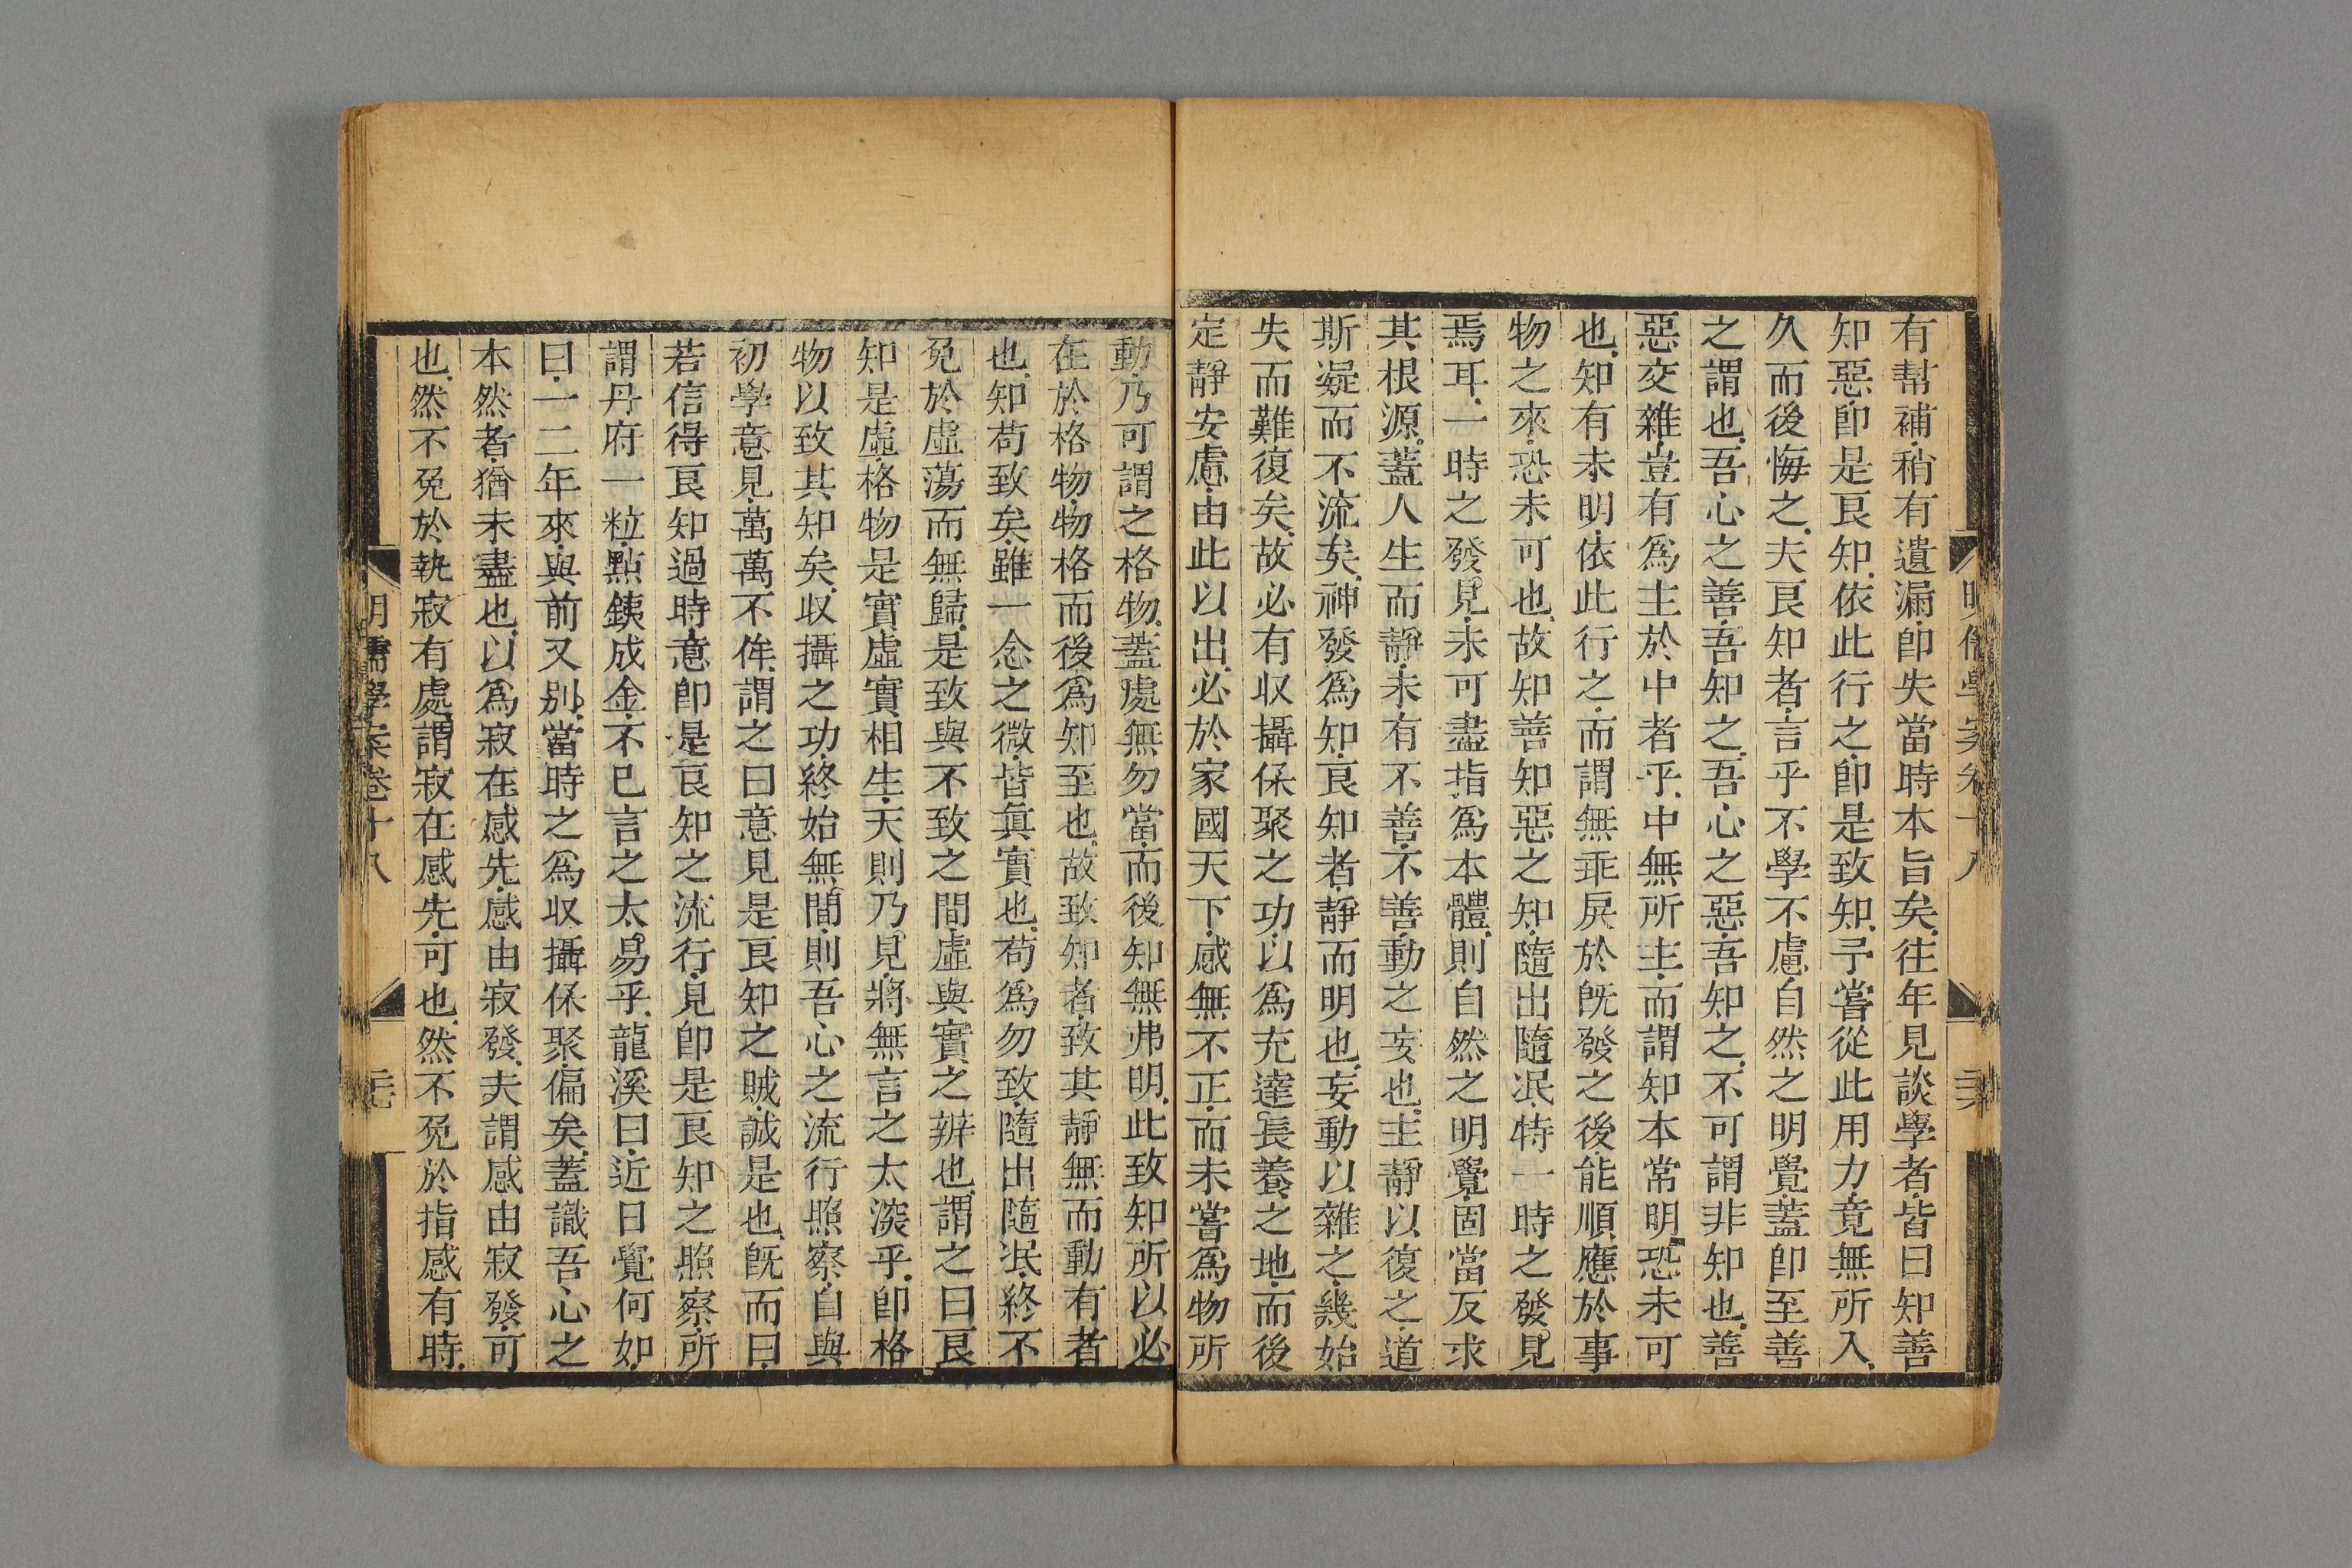 有幫補稍有遺漏卽失當時本旨矣往年見談學者皆曰知善
知惡卽是良知依此行之卽是致知予嘗從此用力竟無所入
久而後悔之夫良知者言乎不學不慮自然之明覺蓋卽至善
之謂也吾心之善吾知之吾心之惡吾知之不可謂非知也善
惡交雜豈有爲主於中者乎中無所主而謂知本常明恐未可
也知有未明依此行之而謂無乖戾於旣發之後能順應於事
物之來恐未可也故知善知惡之知隨出隨泯特一時之發見
焉耳一時之發見未可盡指爲本體則自然之明覺固當反求
其根源蓋人生而靜未有不善不善動之妄也主靜以復之道
斯凝而不流矣神發爲知良知者靜而明也妄動以雜之幾始
失而難復矣故必有収攝保聚之功以爲充達長養之地而後
定靜安慮由此以出必於家國天下感無不正而未嘗爲物所
動乃可謂之格物蓋處無勿當而後知無弗明此致知所以必
在於格物物格而後爲知至也故致知者致其靜無而動有者
也知苟致矣雖一念之微皆眞實也苟爲勿致隨出隨泯終不
免於虛蕩而無歸是致與不致之間虛與實之辨也謂之曰良
知是虛格物是實虛實相生天則乃見將無言之太深乎卽格
物以致其知矣収攝之功終始無間則吾心之流行照察自與
初學意見萬萬不侔謂之曰意見是良知之賊誠是也旣而曰
若信得良知過時意卽是良知之流行見卽是良知之照察所
謂丹府一粒點鐵成金不已言之太易乎龍溪曰近日覺何如
曰一二年來與前又別當時之爲収攝保聚偏矣蓋識吾心之
本然者猶未盡也以爲寂在感先感由寂發夫謂感由寂發可
也然不免於執寂有處謂寂在感先可也然不免於指感有時
明儒學案卷十八